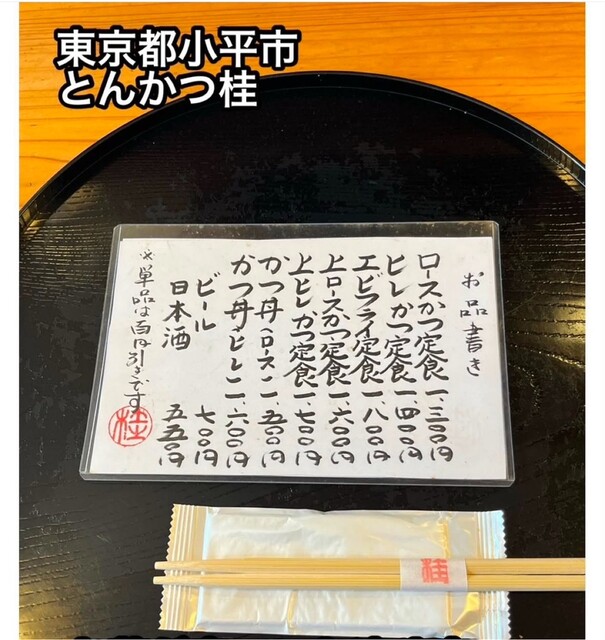 東京都小平市
とんかつ桂
お品書き
ロースかつ定食 一、三〇〇円
ヒレかつ定食 一、四〇〇円
エビフライ定食 一、八〇〇円
上ロースかつ定食 一、六〇〇円
上ヒレかつ定食 一、七〇〇円
かつ丼(ロース) 一、五〇〇円
かつ丼(ヒレ) 一、六〇〇円
ビール 七〇〇円
日本酒 五五〇円
※単品は百円引きです
桂
桂